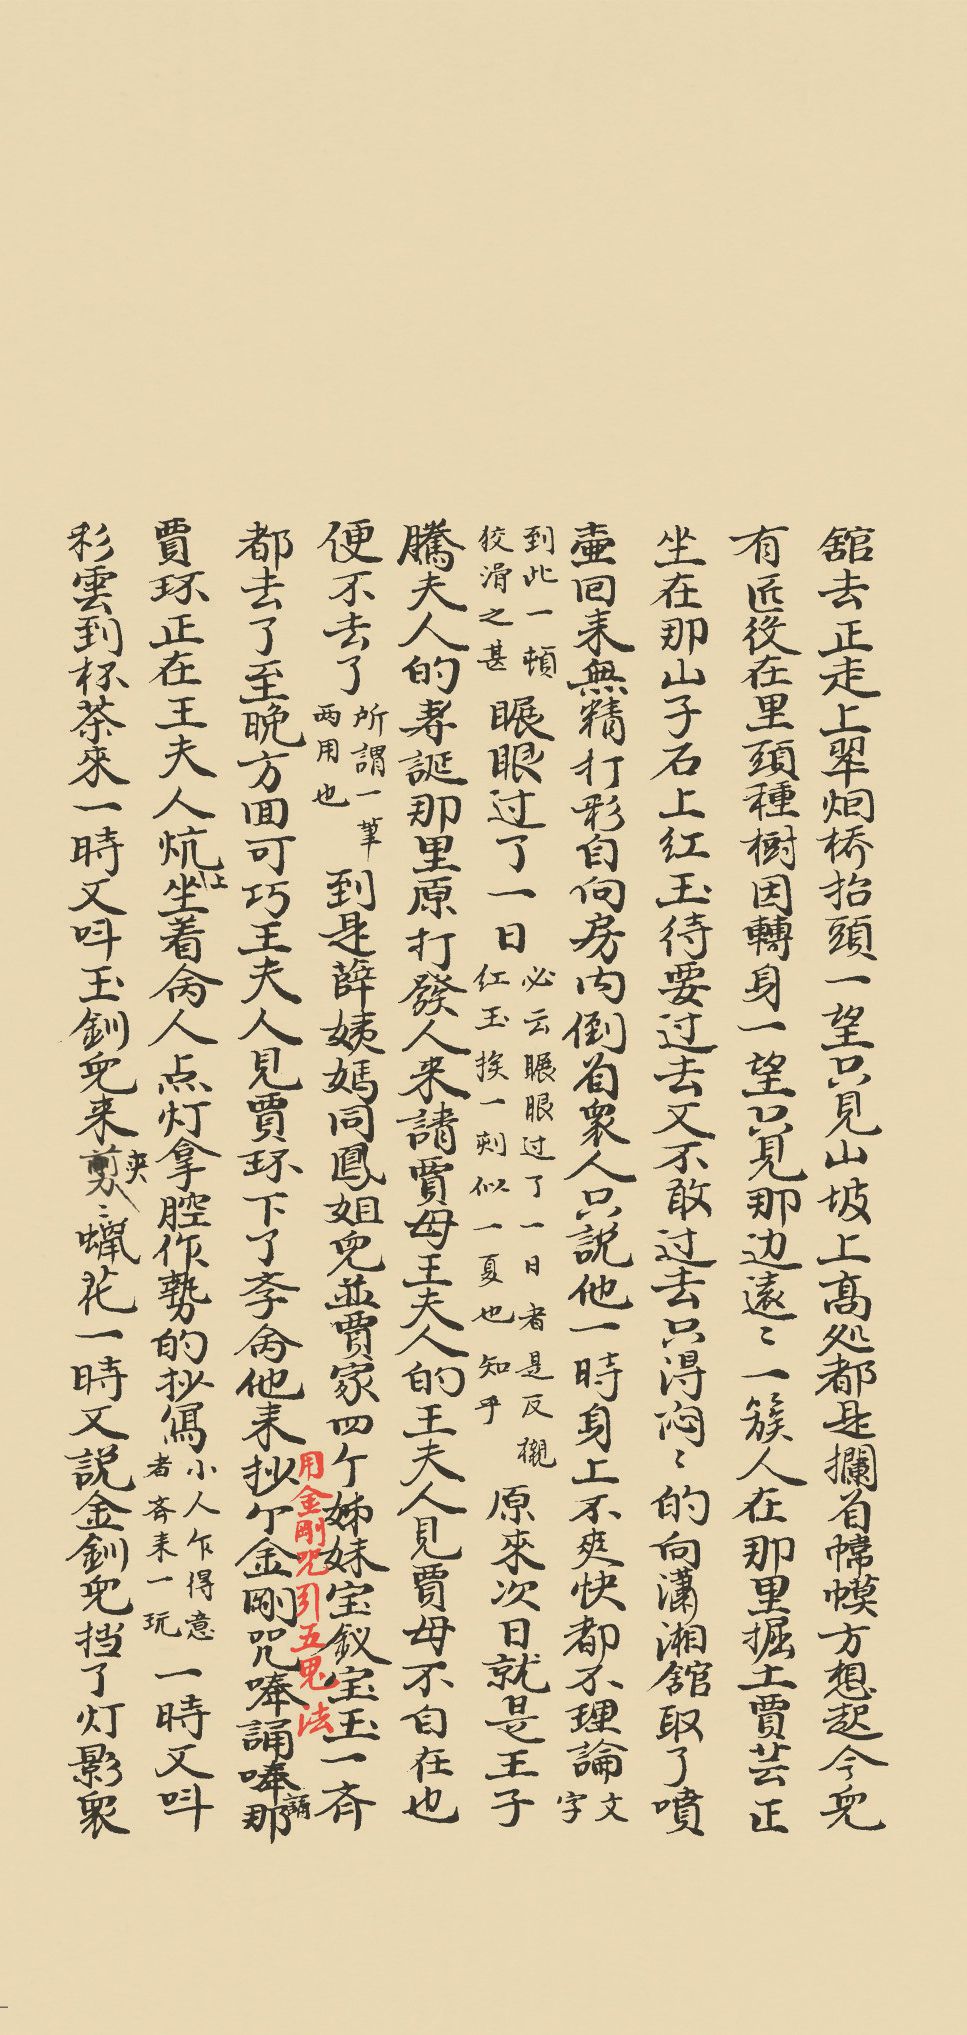 舘去正走上翠烟桥抬頭一望只見山坡上高処都是攔着幃幙方想起今兒
有匠役在里頭種樹因轉身一望只見那边遠〻一簇人在那里掘土賈芸正
坐在那山子石上红玉待要过去又不敢过去只得闷〻的向瀟湘舘取了噴
壶回来無精打彩自向房内倒着衆人只說他一時身上不爽快都不理論
文
字
到此一頓
狡滑之甚
睚眼过了一日
必云睚眼过了一日者是反襯
红玉挨一刻似一夏也知乎
原來次日就是王子
騰夫人的壽誕那里原打發人来請賈母王夫人的王夫人見賈母不自在也
便不去了
所謂一筆
两用也
到是薛姨媽同鳳姐兒並賈家四个姊妹宝釵宝玉一齐
都去了至晚方囬可巧王夫人見賈环下了斈命他来抄个金剛咒唪誦唪那
誦
用金剛咒引五鬼法
賈环正在王夫人炕坐着命人点灯拿腔作勢的抄寫
上
小人乍得意
者齐来一玩
一時又呌
彩雲到杯茶來一時又呌玉釧兒来剪〻蠟花一時又説金釧兒挡了灯影衆
夾